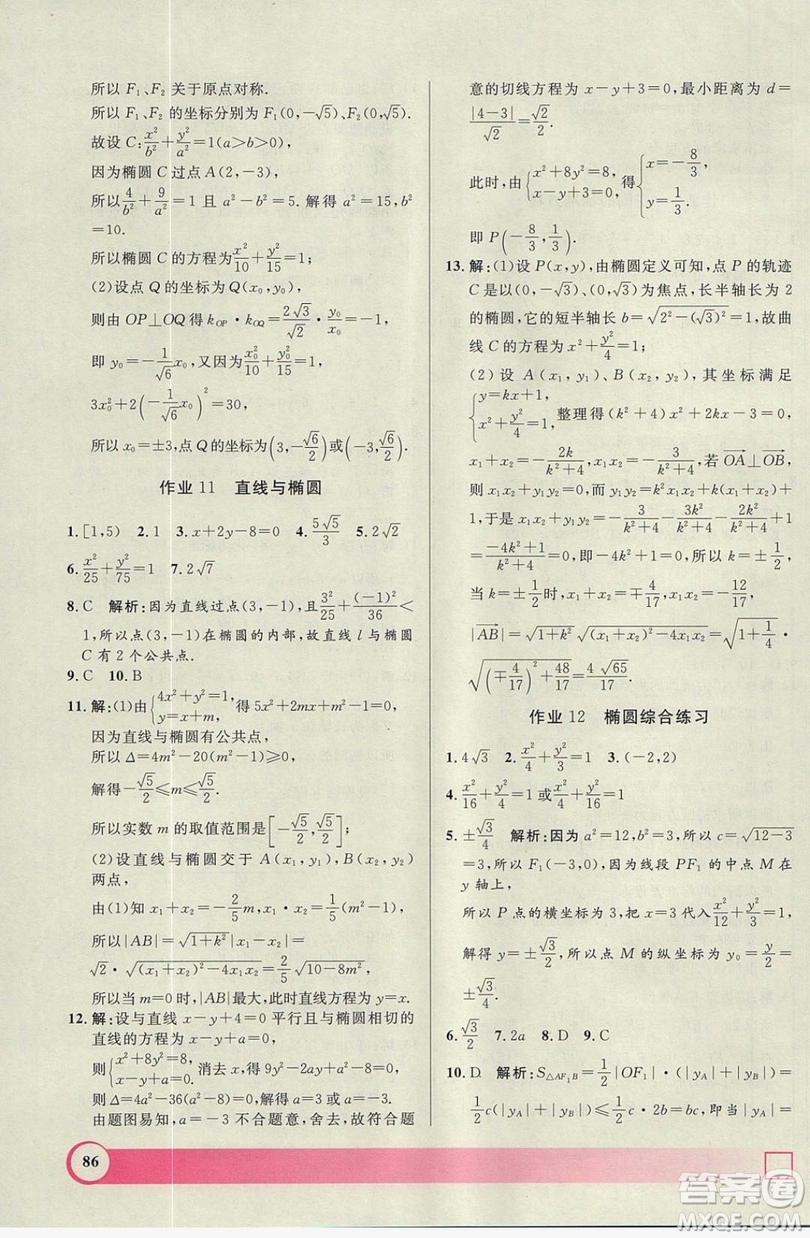 所以 F₁、F₂ 关于原点对称.
所以 F₁、F₂ 的坐标分别为 F₁(0,-√5)、F₂(0,√5).
故设 C: x²/b²+y²/a²=1(a>b>0),
因为椭圆 C 过点 A(2,-3),
所以 4/b²+9/a²=1 且 a²-b²=5. 解得 a²=15,b²
=10.
所以椭圆 C 的方程为 x²/10+y²/15=1;
(2)设点 Q 的坐标为 Q(x₀,y₀)
则由 OP⊥OQ 得 k_OP·k_OQ=2√3/√2·y₀/x₀=-1,
即 y₀=-1/√6 x₀. 又因为 x₀²/10+y₀²/15=1,
3x₀²+2(-1/√6 x₀)²=30,
所以 x₀=±3,点 Q 的坐标为(3,-√6/2)或(-3,√6/2).
作业 11 直线与椭圆
1.[1,5) 2.1 3.x+2y-8=0 4.5√5/3 5.2√2
6.x²/25+y²/75=1 7.2√7
8.C 解析:因为直线过点(3,-1),且3²/25+(-1)²/36<
1,所以点(3,-1)在椭圆的内部,故直线 l 与椭圆
C 有 2 个公共点.
9.C 10.B
11.解:(1)由{4x²+y²=1 y=x+m, 得 5x²+2mx+m²-1=0,
因为直线与椭圆有公共点,
所以 Δ=4m²-20(m²-1)≥0,
解得-√5/2≤m≤√5/2.
所以实数 m 的取值范围是[-√5/2,√5/2].
(2)设直线与椭圆交于 A(x₁,y₁),B(x₂,y₂)
两点,
由(1)知 x₁+x₂=-2/5 m,x₁x₂=1/5(m²-1),
所以|AB|=√(1+k²)|x₁-x₂|=
√2·√((x₁+x₂)²-4x₁x₂)=2/5√(10-8m²).
所以当 m=0 时,|AB|最大,此时直线方程为 y=x.
12.解:设与直线 x-y+4=0 平行且与椭圆相切的
直线的方程为 x-y+a=0,
则{x²+8y²=8 x-y+a=0. 消去 x,得 9y²-2ay+a²-8=0,
则 Δ=4a²-36(a²-8)=0. 解得 a=3 或 a=-3.
由题图易知,a=-3 不合题意,舍去,故符合题
意的切线方程为 x-y+3=0,最小距离为 d=
|4-3|/√2=√2/2.
此时,由{x²+8y²=8, x-y=-3. 得{x=-8/3, y=1/3.
即 P(-8/3,1/3).
13.解:(1)设 P(x,y),由椭圆定义可知,点 P 的轨迹
C 是以(0,-√3)、(0,√3)为焦点,长半轴长为 2
的椭圆,它的短半轴长 b=√(2²-(√3)²)=1,故曲
线 C 的方程为 x²+y²/4=1;
(2)设 A(x₁,y₁)、B(x₂,y₂),其坐标满足
{y=kx+1, x²+y²/4=1, 整理得(k²+4)x²+2kx-3=0,故
x₁+x₂=-2k/(k²+4),x₁x₂=-3/(k²+4). 若 OA⊥OB,
则 x₁x₂+y₁y₂=0. 而 y₁y₂=k²x₁x₂+k(x₁+x₂)+
1,于是 x₁x₂+y₁y₂=-3/(k²+4)-3k²/(k²+4)-2k²/(k²+4)+
1=(-4k²+1)/(k²+4)=0,即-4k²+1=0,所以 k=±1/2,
当 k=±1/2 时,x₁+x₂=∓4/17,x₁x₂=-12/17,
|AB|=√(1+k²)√((x₁+x₂)²-4x₁x₂)=√(1+1/4)·
√((∓4/17)²+48/17)=4√65/17.
作业 12 椭圆综合练习
1.4√3 2.x²/4+y²/3=1 3.(-2,2)
4.x²/16+y²/4=1 或 x²/4+y²/16=1
5.±√3/4 解析:因为 a²=12,b²=3,所以 c=√(12-3)
=3,所以 F₁(-3,0),因为线段 PF₁ 的中点 M 在
y 轴上,
所以 P 点的横坐标为 3,把 x=3 代入 x²/12+y²/3=1,
解得 y=±√3/2,所以点 M 的纵坐标为 y₀=y/2=
±√3/4.
6.√3/2 7.2a 8.D 9.C
10.D 解析:S△AF₁B=1/2|OF₁|·(|y_A|+|y_B|)=
1/2 c(|y_A|+|y_B|)≤1/2 c·2b=bc,即当|y_A|=
86
答案圈
MXQE.COM